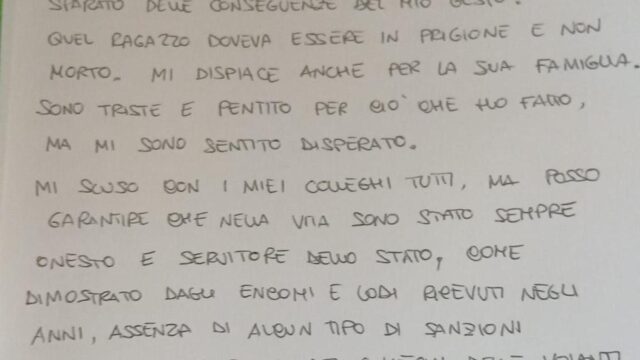 SPARATO DELLE CONSEGUENZE DEL MIO GESTO.
QUEL RAGAZZO DOVEVA ESSERE IN PRIGIONE E NON
MORTO. MI DISPIACE ANCHE PER LA SUA FAMIGLIA.
SONO TRISTE E PENTITO PER CIÒ CHE HO FATTO,
MA MI SONO SENTITO DISPERATO.
MI SCUSO CON I MIEI COLLEGHI TUTTI, MA POSSO
GARANTIRE CHE NELLA VITA SONO STATO SEMPRE
ONESTO E SERVITORE DELLO STATO, COME
DIMOSTRATO DAGLI ENCOMI E LODI RICEVUTI NEGLI
ANNI, ASSENZA DI ALCUN TIPO DI SANZIONI